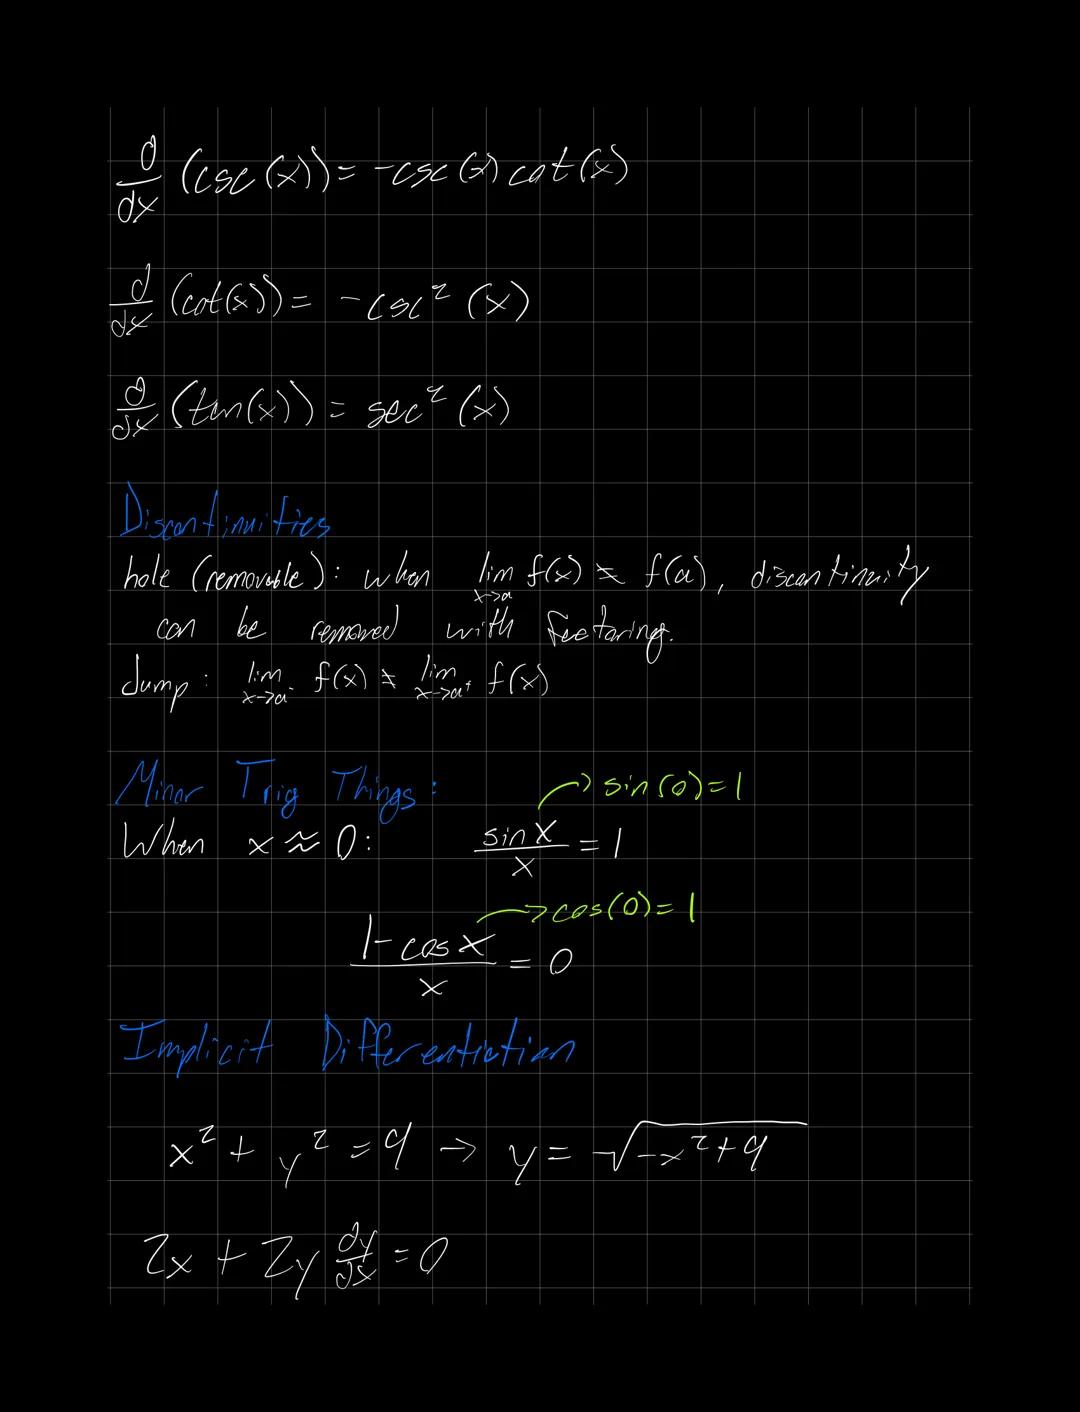 d/dx (csc(x)) = -csc(x) cot(x)
d/dx (cot(x)) = -csc² (x)
d/dx (tan(x)) = sec² (x)
Discontinuities
hole (removable): when lim x→a f(x) ≠ f(a), discontinuity
can be removed with factoring.
Jump: lim x→a⁻ f(x) ≠ lim x→a⁺ f(x)
Minor Trig Things:
→ sin(0)=1
When x ≈ 0: sin x / x = 1
→ cos(0)=1
1-cos x / x = 0
Implicit Differentiation
x² + y² = 9 → y = √(-x²+9)
2x + 2y dy/dx = 0